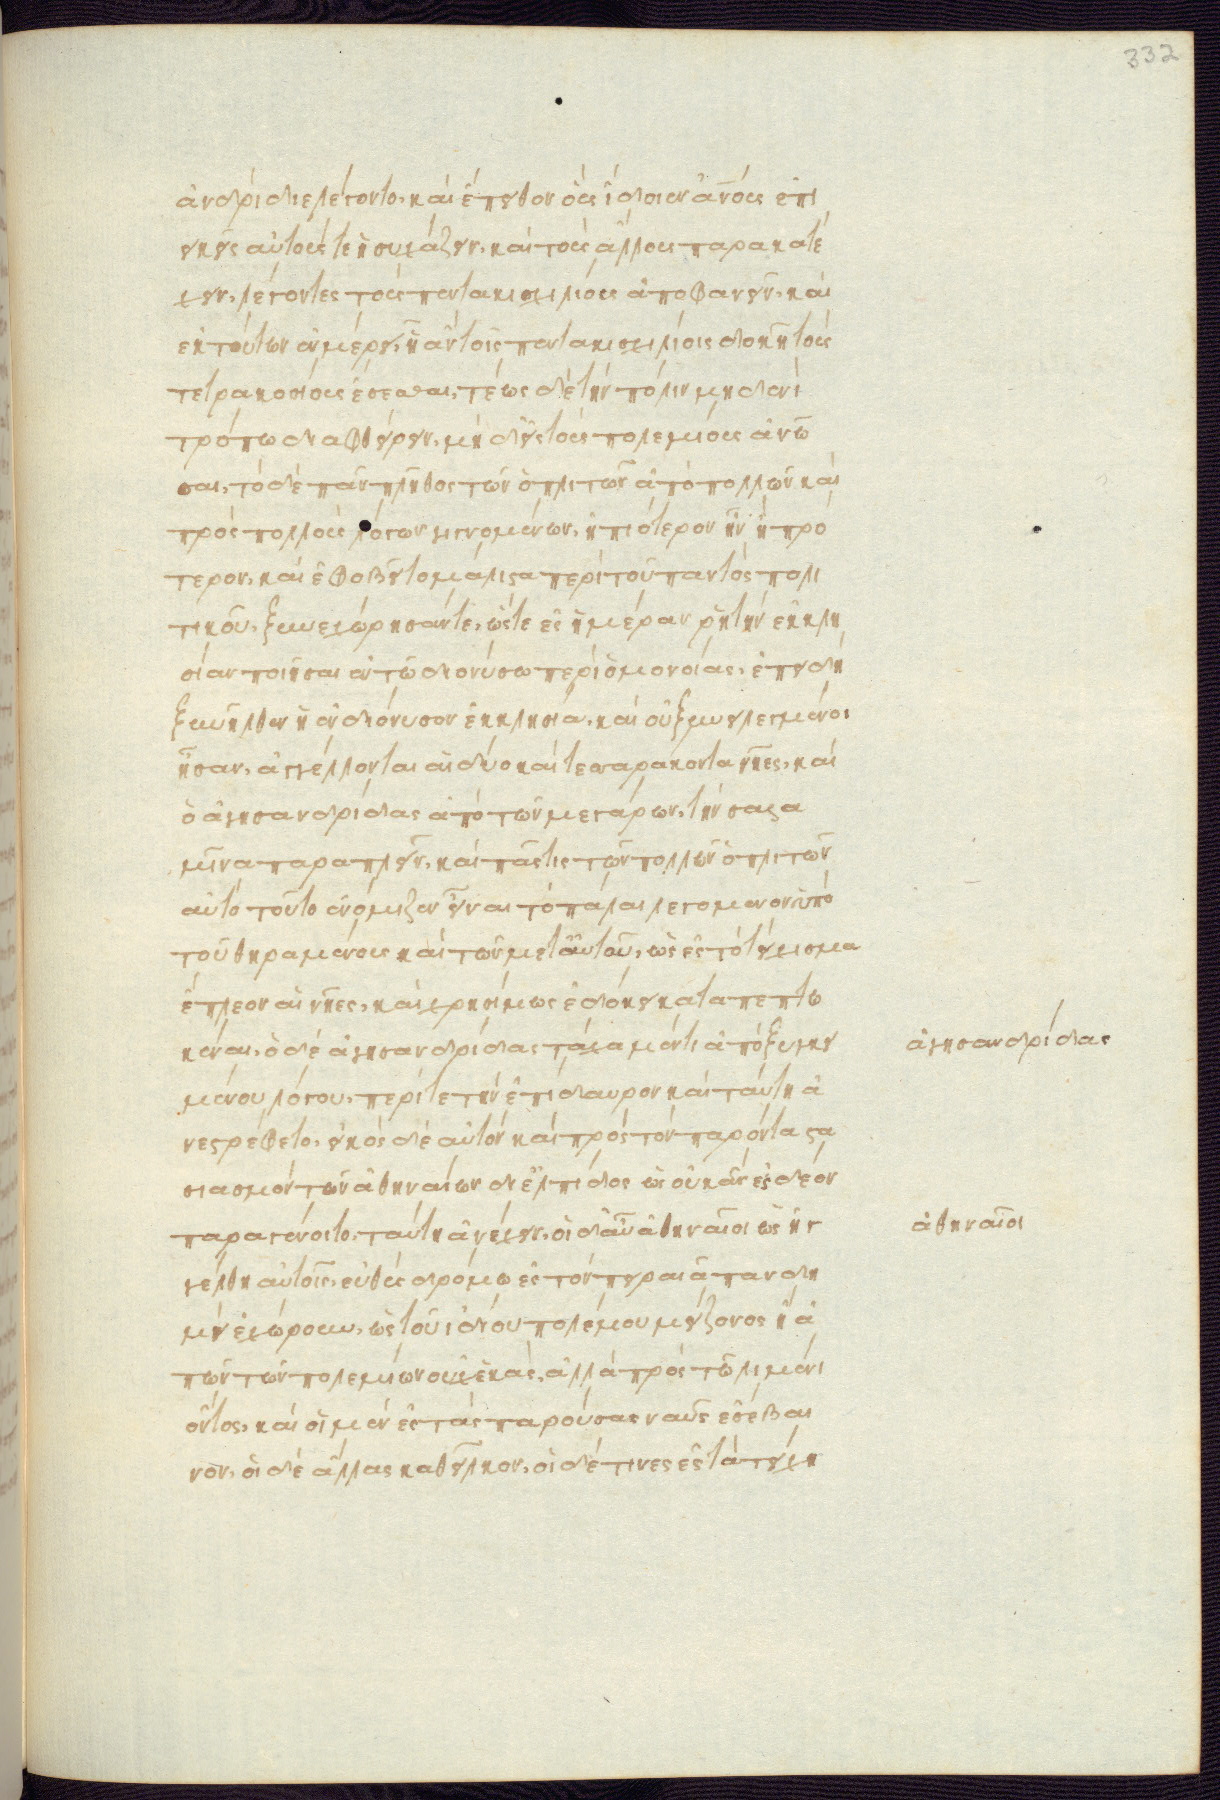 332
ἀνδρὶ διελέγοντο, καὶ ἔπειθον οὓς ἴδοιεν ἀν̅ους ἐπι
εικεῖς αὐτούς τε ἡσυχάζειν, καὶ τοὺς ἄλλους παρακατέ
χειν, λέγοντες τοὺς πεντακισχιλίους ἀποφανεῖν, καὶ
ἐκ τούτων ἐν μέρει, ἧ ἂν τοῖς πεντακισχιλίοις δοκῇ τοὺς
τετρακοσίους ἔσεσθαι, τέως δὲ τὴν πόλιν μηδενὶ
τρόπω διαφθείρειν, μὴ δ' εἰς τοὺς πολεμίους ἀνῶ
σαι, τὸ δὲ πᾶν πλῆθος τῶν ὁπλιτῶν ἀπὸ πολλῶν καὶ
πρὸς πολλοὺς λόγων γιγνομένων, ἠπιότερον ἦν ἢ πρό
τερον, καὶ ἐφοβεῖτο μάλιστα περὶ τοῦ παντὸς πολι
τικοῦ, ξυνεχώρησάν τε, ὥστε ἐς ἡμέραν ῥητὴν ἐκκλη
σίαν ποιῆσαι ἐν τῶ διονύσω περὶ ὁμονοίας, ἐπειδὴ
ξυνῆλθεν ἡ ἐν διόνυσον ἐκκλησία, καὶ οὐ ξυνειλεγμένοι
ἦσαν, ἀγγέλλονται αἱ δύο καὶ τεσσαράκοντα νῆες, καὶ
ὁ ἀγησανδρίδας ἀπὸ τῶν μεγάρων, τὴν σαλα
μῖνα παραπλεῖν, καὶ πᾶς τις τῶν πολλῶν ὁπλιτῶν
αὐτὸ τοῦτο ἐνόμιζεν εἶναι τὸ πάλαι λεγόμενον ὑπὸ
τοῦ θηραμένους καὶ τῶν μετ' αὐτοῦ, ὡς ἐς τὸ τείχισμα
ἔπλεον αἱ νῆες, καὶ χρησίμως ἐδόκει καταπεπτω
κέναι, ὁ δὲ ἀγησανδρίδας τάχα μέν τι ἀπὸ ξυγκει
μένου λόγου, περί τε τὴν ἐπίδαυρον καὶ ταύτη ἀ
νεστρέφετο, εἰκὸς δὲ αὐτὸν καὶ πρὸς τὸν παρόντα στα
σιασμὸν τῶν ἀθηναίων δι' ἐλπίδος ὡς οὐκ ἂν ἐς δέον
παραγένοιτο, ταύτη ἀνέχειν, οἱ δ' αὖ ἀθηναῖοι ὡς ἠγ
γέλθη αὐτοῖς, εὐθὺς δρόμω ἐς τὸν πειραιᾶ πανδη
μεὶ ἐχώρουν, ὡς τοῦ ἰδίου πολέμου μείζονος ἢ ἀ
πὸ τῶν πολεμίων οὐχ ἑκὰς, ἀλλὰ πρὸς τῶ λιμένι
ὄντος, καὶ οἱ μὲν ἐς τὰς παρούσας ναῦς ἐσέβαι
νον, οἱ δὲ ἄλλας καθεῖλκον, οἱ δέ τινες ἐς τὰ τείχη
ἀγησανδρίδας
ἀθηναῖοι